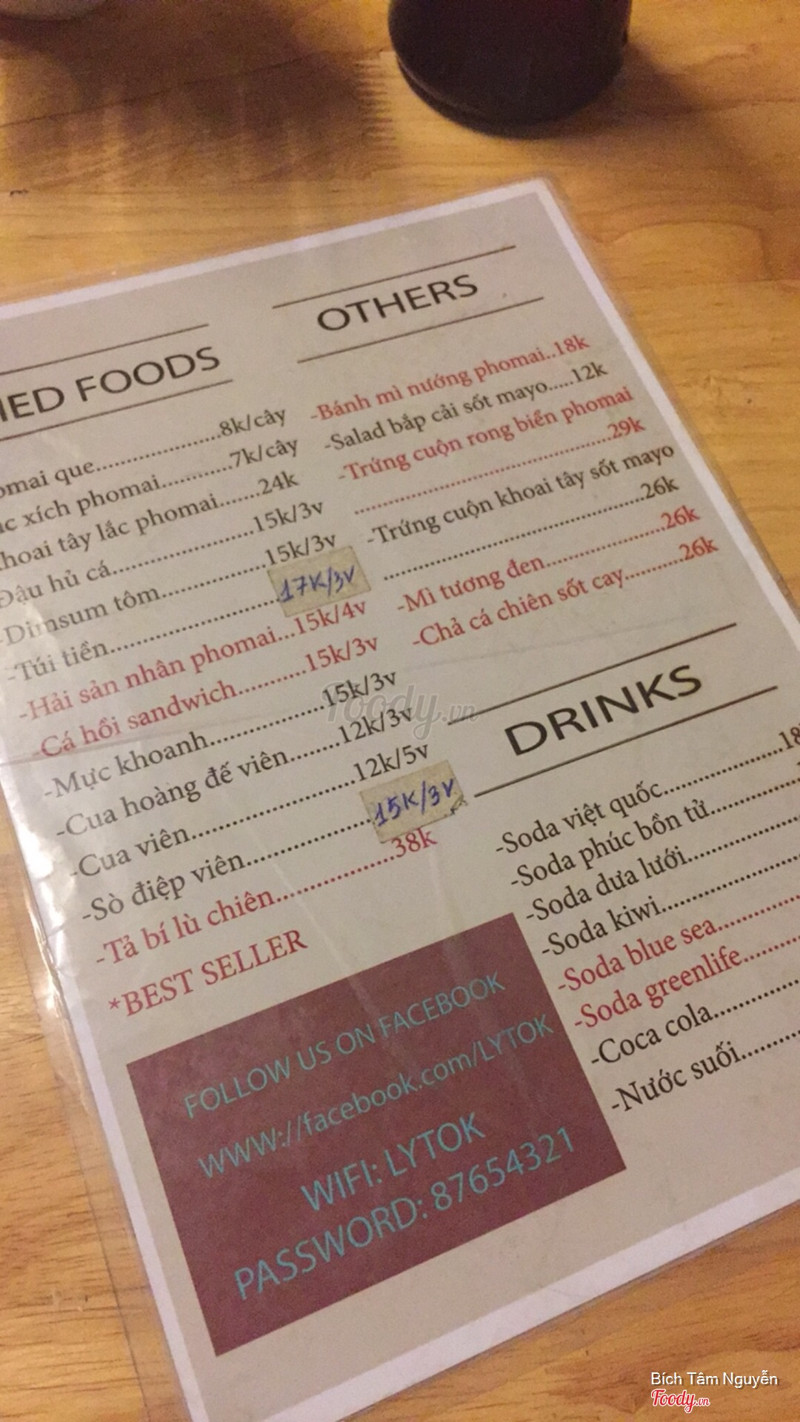 IED FOODS
omai que....................8k/cây
úc xích phomai...........7k/cây
hoai tây lắc phomai......24k
-Đậu hủ cá.......................15k/3v
-Dimsum tôm.................15k/3v
-Túi tiền...........................17K/3V
-Hải sản nhân phomai...15k/4v
-Cá hồi sandwich..........15k/3v
-Mực khoanh.................15k/3v
-Cua hoàng đế viên.......12k/3v
-Cua viên.........................12k/5v
-Sò điệp viên...................15K/3V
-Tả bí lù chiên..................38k
*BEST SELLER
OTHERS
-Bánh mì nướng phomai..18k
-Salad bắp cải sốt mayo.....12k
-Trứng cuộn rong biển phomai
......................................29k
-Trứng cuộn khoai tây sốt mayo
.......................................26k
-Mì tương đen.................26k
-Chả cá chiên sốt cay..........26k
DRINKS
-Soda việt quốc.................18
-Soda phúc bồn tử
-Soda dưa lưới
-Soda kiwi
-Soda blue sea
-Soda greenlife
-Coca cola
-Nước suối
FOLLOW US ON FACEBOOK
WWW://facebook.com/LYTOK
WIFI: LYTOK
PASSWORD: 87654321
Foody.vn
Bích Tâm Nguyễn
Foody.vn